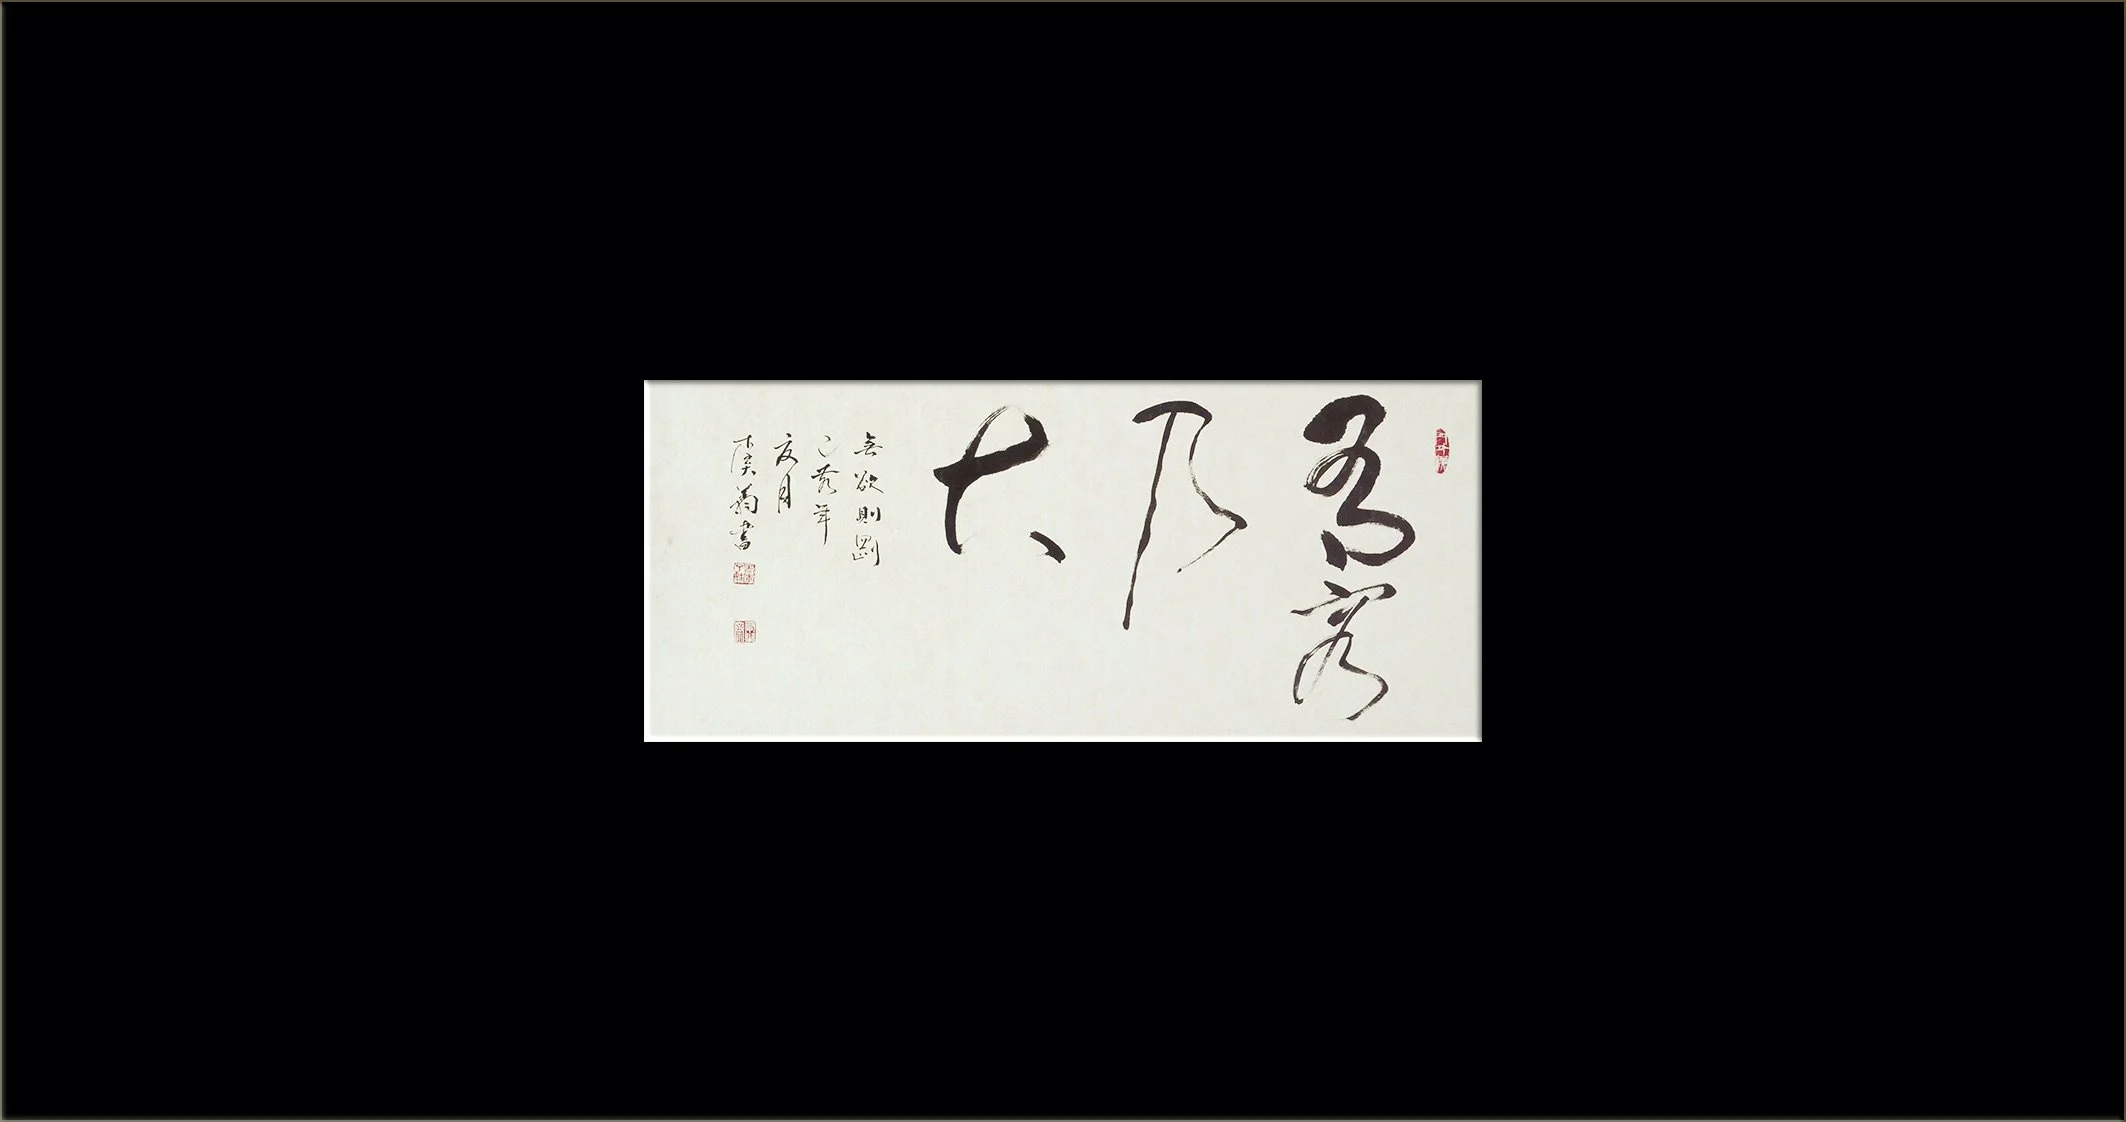 有容
乃
大
無欲則剛
己亥年
夏月
陳菊書